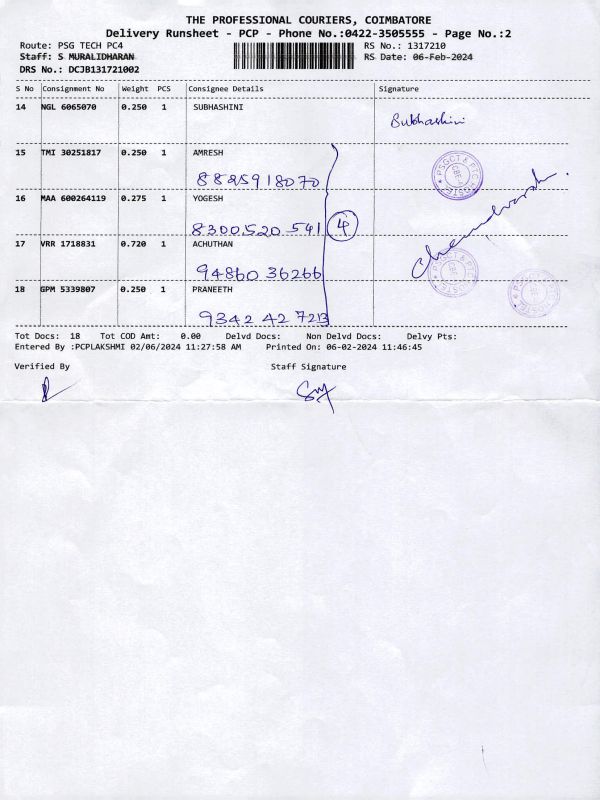 THE PROFESSIONAL COURIERS, COIMBATORE
Delivery Runsheet - PCP - Phone No.:0422-3505555 - Page No.:2
Route: PSG TECH PC4 RS No.: 1317210
Staff: S MURALIDHARAN RS Date: 06-Feb-2024
DRS No.: DCJB131721002
S No Consignment No Weight PCS Consignee Details Signature
14 NGL 6065070 0.250 1 SUBHASHINI
Subhashini
15 TMI 30251817 0.250 1 AMRESH
8825918070
16 MAA 600264119 0.275 1 YOGESH
8300520541
4
17 VRR 1718831 0.720 1 ACHUTHAN
94860 36266
18 GPM 5339807 0.250 1 PRANEETH
9342 42 7213
Tot Docs: 18 Tot COD Amt: 0.00 Delvd Docs: Non Delvd Docs: Delvy Pts:
Entered By :PCPLAKSHMI 02/06/2024 11:27:58 AM Printed On: 06-02-2024 11:46:45
Verified By Staff Signature